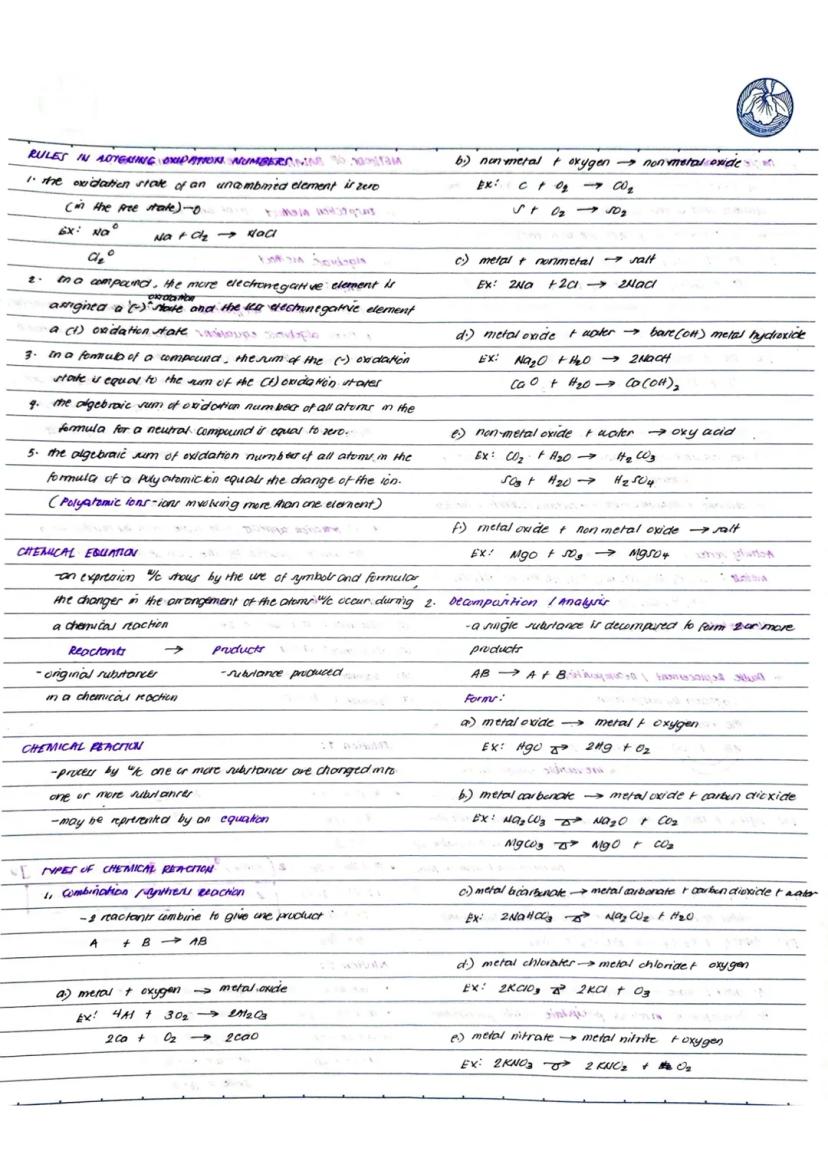 RULES IN ASSIGNING OXIDATION NUMBERS
1. the oxidation state of an uncombined element is zero
(in the free state) → 0
Ex: Na⁰ Na + Cl₂ → NaCl
Cl₂⁰
2. In a compound, the more electronegative element is
assigned a (-) oxidation state and the less electronegative element
a (+) oxidation state
3. In a formula of a compound, the sum of the (-) oxidation
state is equal to the sum of the (+) oxidation states
4. The algebraic sum of oxidation number of all atoms in the
formula for a neutral compound is equal to zero.
5. the algebraic sum of oxidation number of all atoms in the
formula of a polyatomic ion equals the change of the ion.
(Polyatomic ions - ions involving more than one element)
CHEMICAL EQUATION
- an expression w/c shows by the use of symbols and formulas,
the changes in the arrangement of the atoms w/c occur during
a chemical reaction
Reactants → Products
- original substances - substance produced
in a chemical reaction
CHEMICAL REACTION
- process by w/c one or more substances are changed into
one or more substances
- may be represented by an equation
TYPES OF CHEMICAL REACTION
1. Combination / Synthesis Reaction
- 2 reactants combine to give one product
A + B → AB
a) metal + oxygen → metal oxide
Ex: 4Al + 3O₂ → 2Al₂O₃
2Ca + O₂ → 2CaO
b.) nonmetal + oxygen → nonmetal oxide
Ex: C + O₂ → CO₂
S + O₂ → SO₂
c.) metal + nonmetal → salt
Ex: 2Na + 2Cl → 2NaCl
d.) metal oxide + water → base (OH) metal hydroxide
Ex: Na₂O + H₂O → 2NaOH
CaO + H₂O → Ca(OH)₂
e.) non-metal oxide + water → oxy acid
Ex: CO₂ + H₂O → H₂CO₃
SO₃ + H₂O → H₂SO₄
f.) metal oxide + non metal oxide → salt
Ex: MgO + SO₃ → MgSO₄
2. Decomposition / Analysis
- a single substance is decomposed to form 2 or more
products
AB → A + B
Forms:
a.) metal oxide → metal + oxygen
Ex: HgO △→ 2Hg + O₂
b.) metal carbonate → metal oxide + carbon dioxide
Ex: Na₂CO₃ △→ Na₂O + CO₂
MgCO₃ △→ MgO + CO₂
c.) metal bicarbonate → metal carbonate + carbon dioxide + water
Ex: 2NaHCO₃ △→ Na₂CO₂ + H₂O
d.) metal chlorates → metal chloride + oxygen
Ex: 2KClO₃ △→ 2KCl + O₃
e.) metal nitrate → metal nitrite + oxygen
Ex: 2KNO₃ △→ 2KNO₂ + O₂